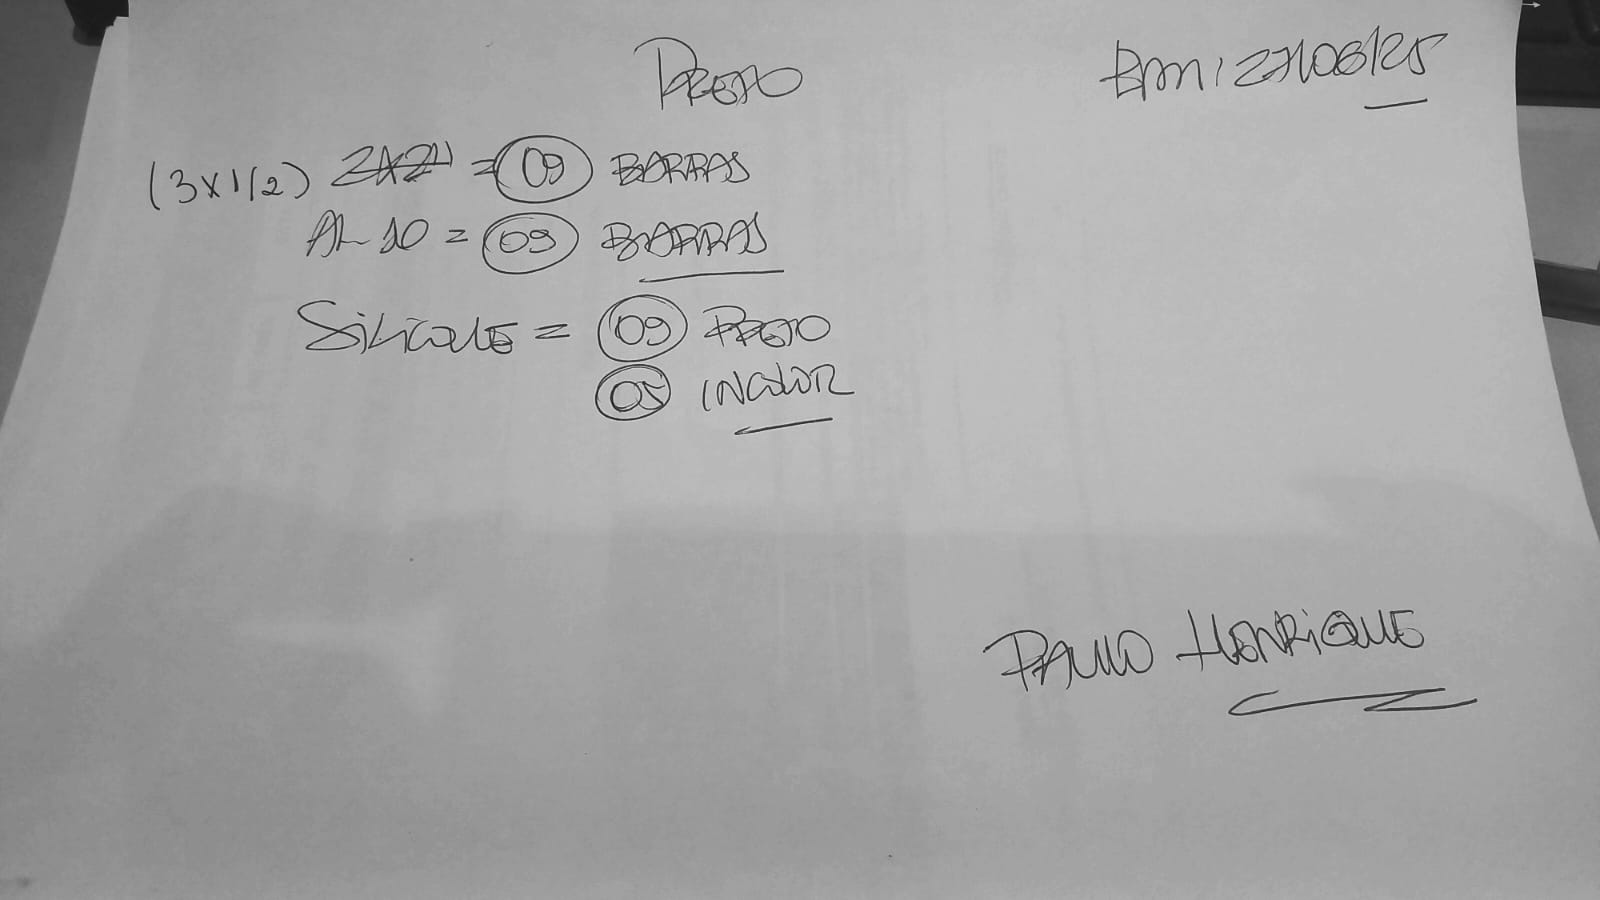 PRETO
Em: 27/08/25
(3x1/2) 2x2" = 09 BARRAS
AL 10 = 09 BARRAS
SILICONE = 09 PRETO
05 INCOLOR
PAULO HENRIQUE